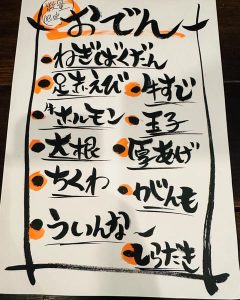 おでん
ねぎばくだん
足赤えび
牛すじ
牛ホルモン
玉子
大根
厚あげ
ちくわ
がんも
ういんなー
しらたき